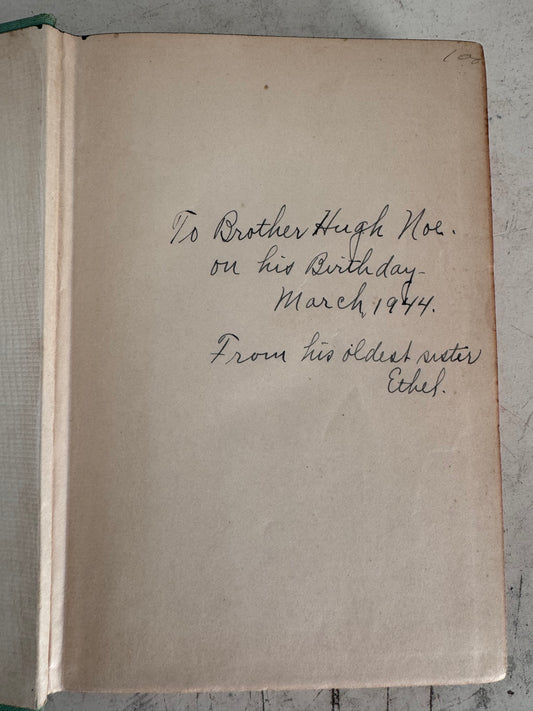 100
To Brother Hugh Noe.
on his Birthday-
March, 1944.
From his oldest sister
Ethel.